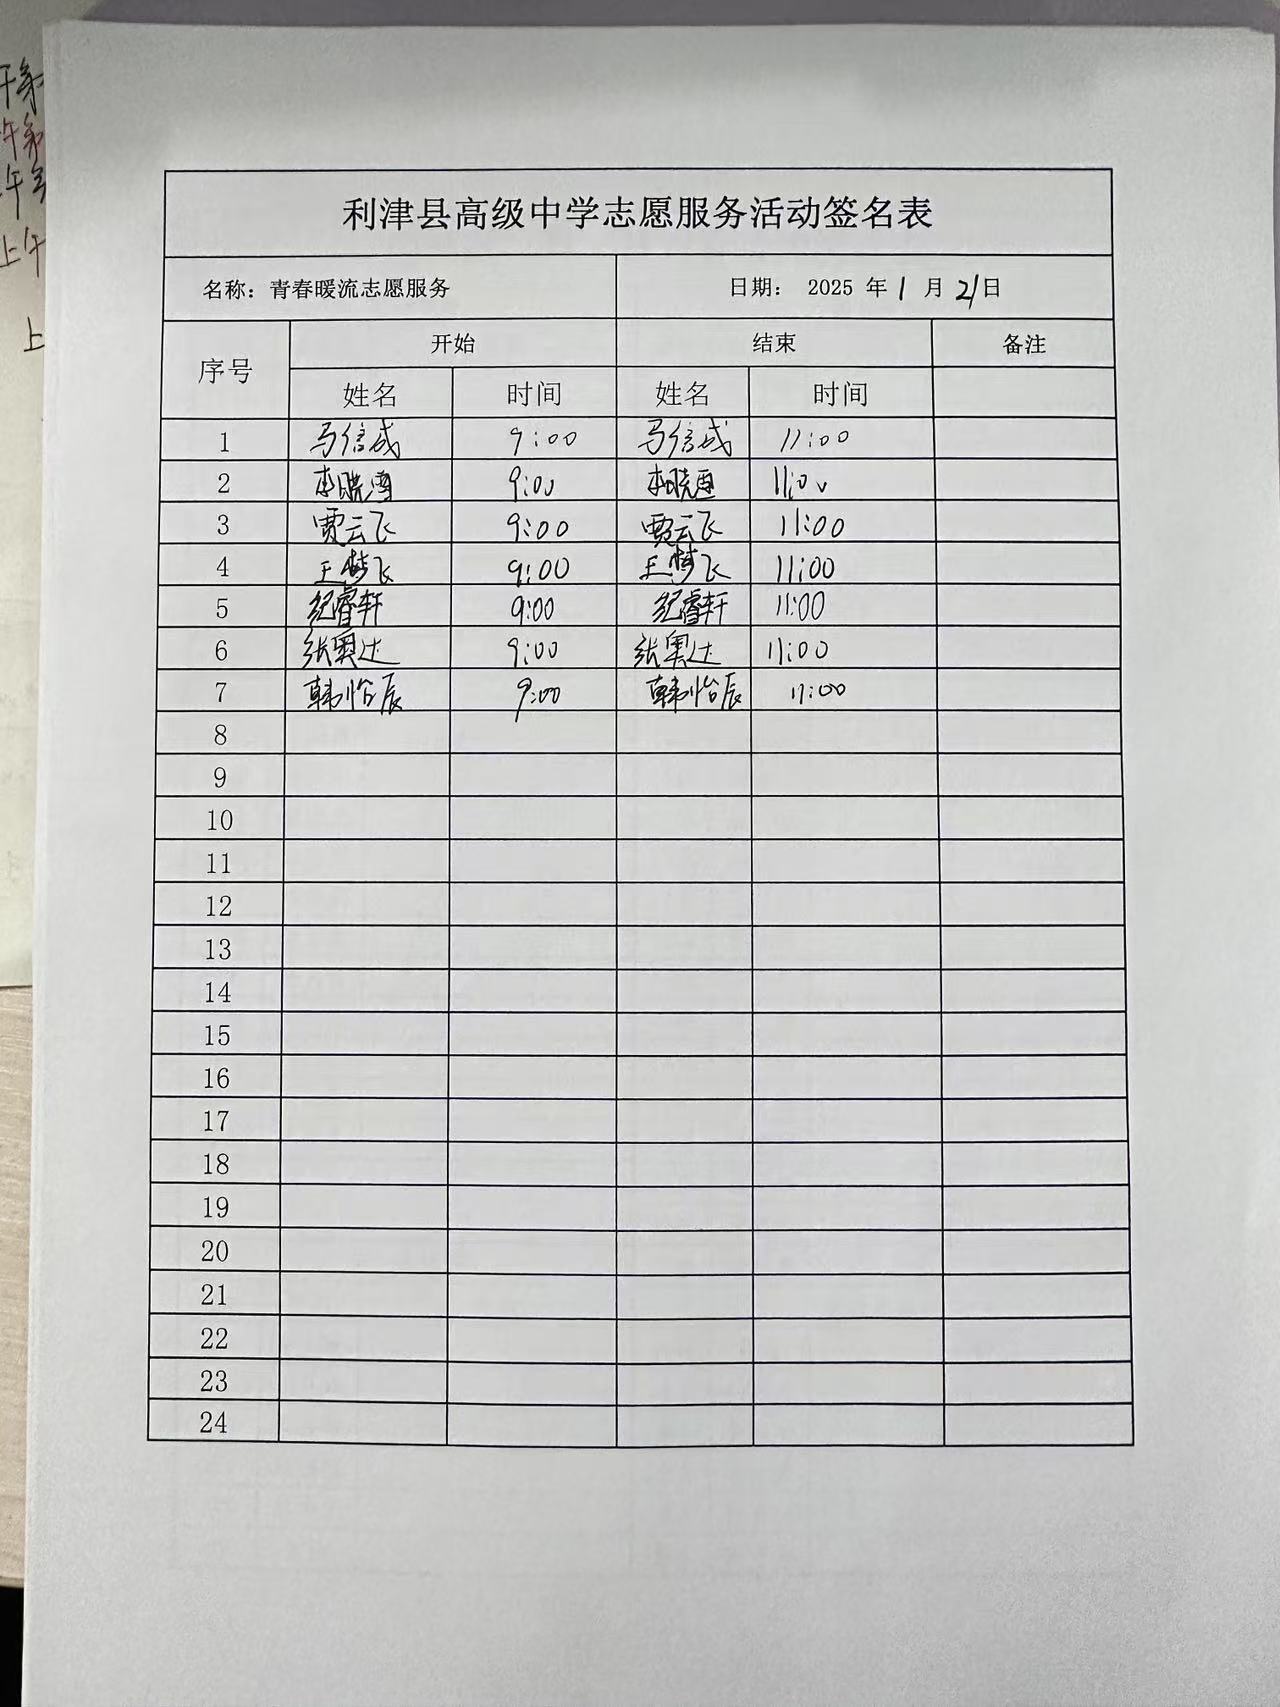 利津县高级中学志愿服务活动签名表
名称：青春暖流志愿服务 日期： 2025 年 1 月 21日
序号 开始 结束 备注
姓名 时间 姓名 时间
1 马信成 9:00 马信成 11:00
2 李晓雪 9:00 李晓雪 11:00
3 贾云飞 9:00 贾云飞 11:00
4 王梦飞 9:00 王梦飞 11:00
5 纪睿轩 9:00 纪睿轩 11:00
6 张奥达 9:00 张奥达 11:00
7 韩怡辰 9:00 韩怡辰 11:00
8
9
10
11
12
13
14
15
16
17
18
19
20
21
22
23
24
上午
上